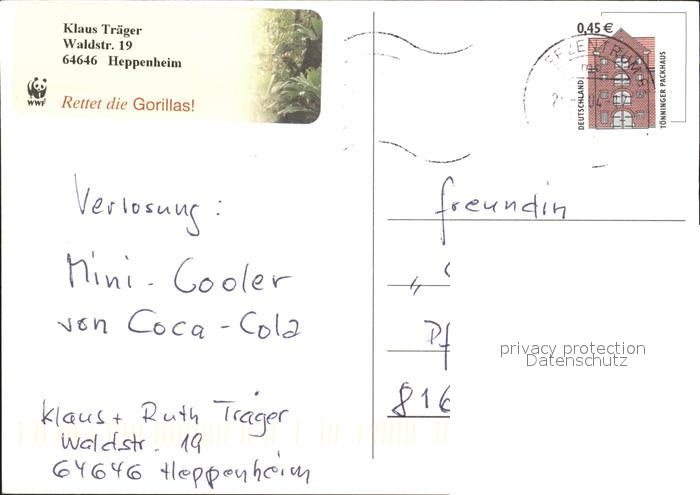 Klaus Träger
Waldstr. 19
64646 Heppenheim
WWF
Rettet die Gorillas!
0,45 €
DEUTSCHLAND
TÖNNINGER PACKHAUS
Verlosung:
Mini-Cooler
von Coca-Cola
Klaus + Ruth Träger
Waldstr. 19
64646 Heppenheim
freundin
Pf
816
privacy protection
Datenschutz